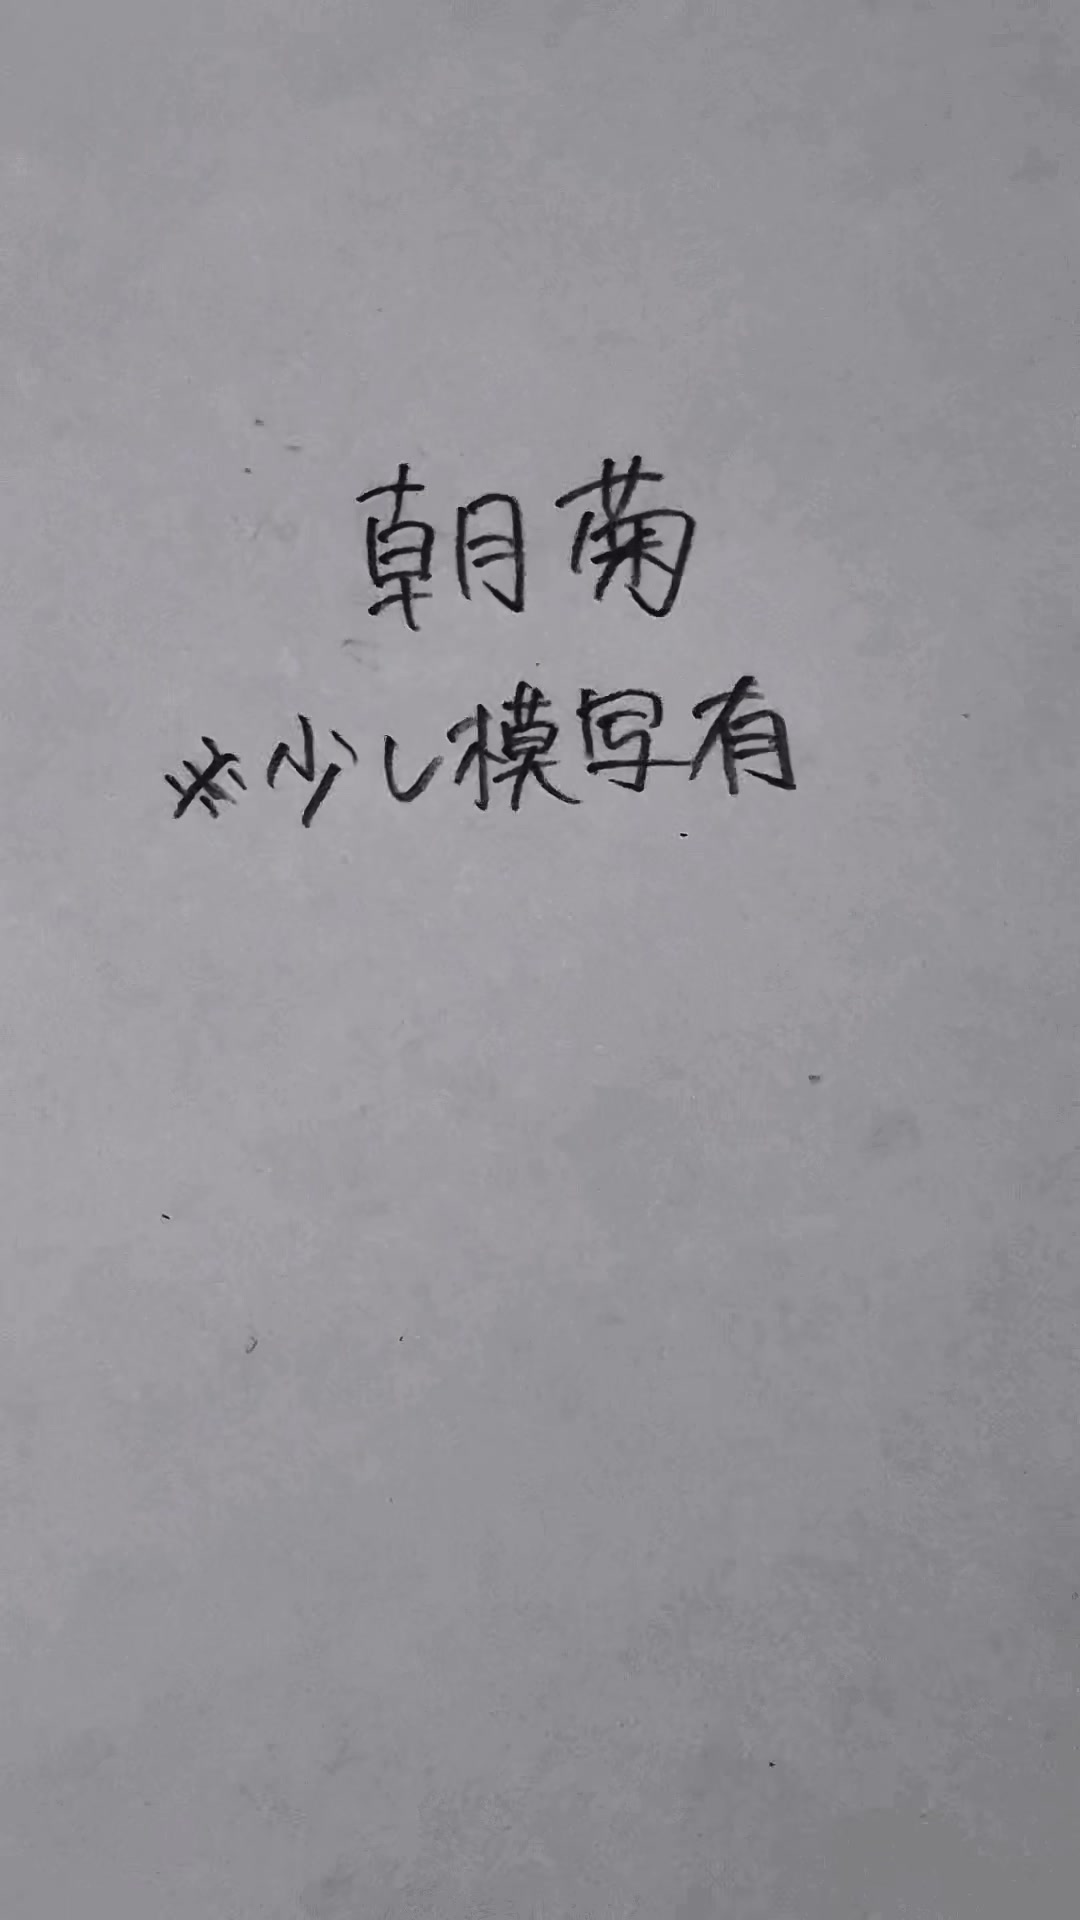 朝菊
※少し模写有